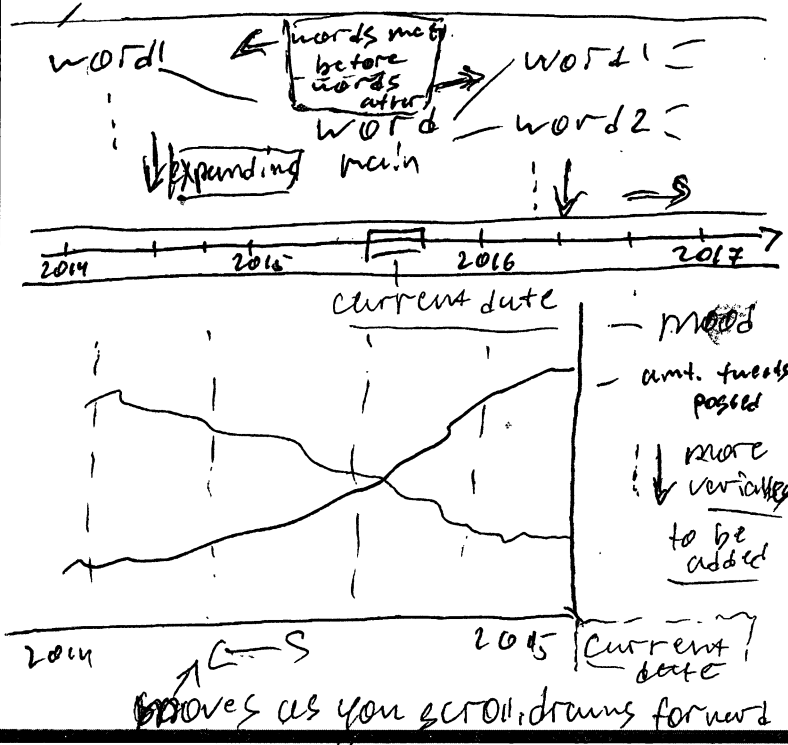 word1
words
before
words
after
word1
word
word2
expanding
main
2014 2015 2016 2017
current date
mood
amt. tweets
posted
more
variables
to be
added
2014 2015
current
date
moves as you scroll, draws forward